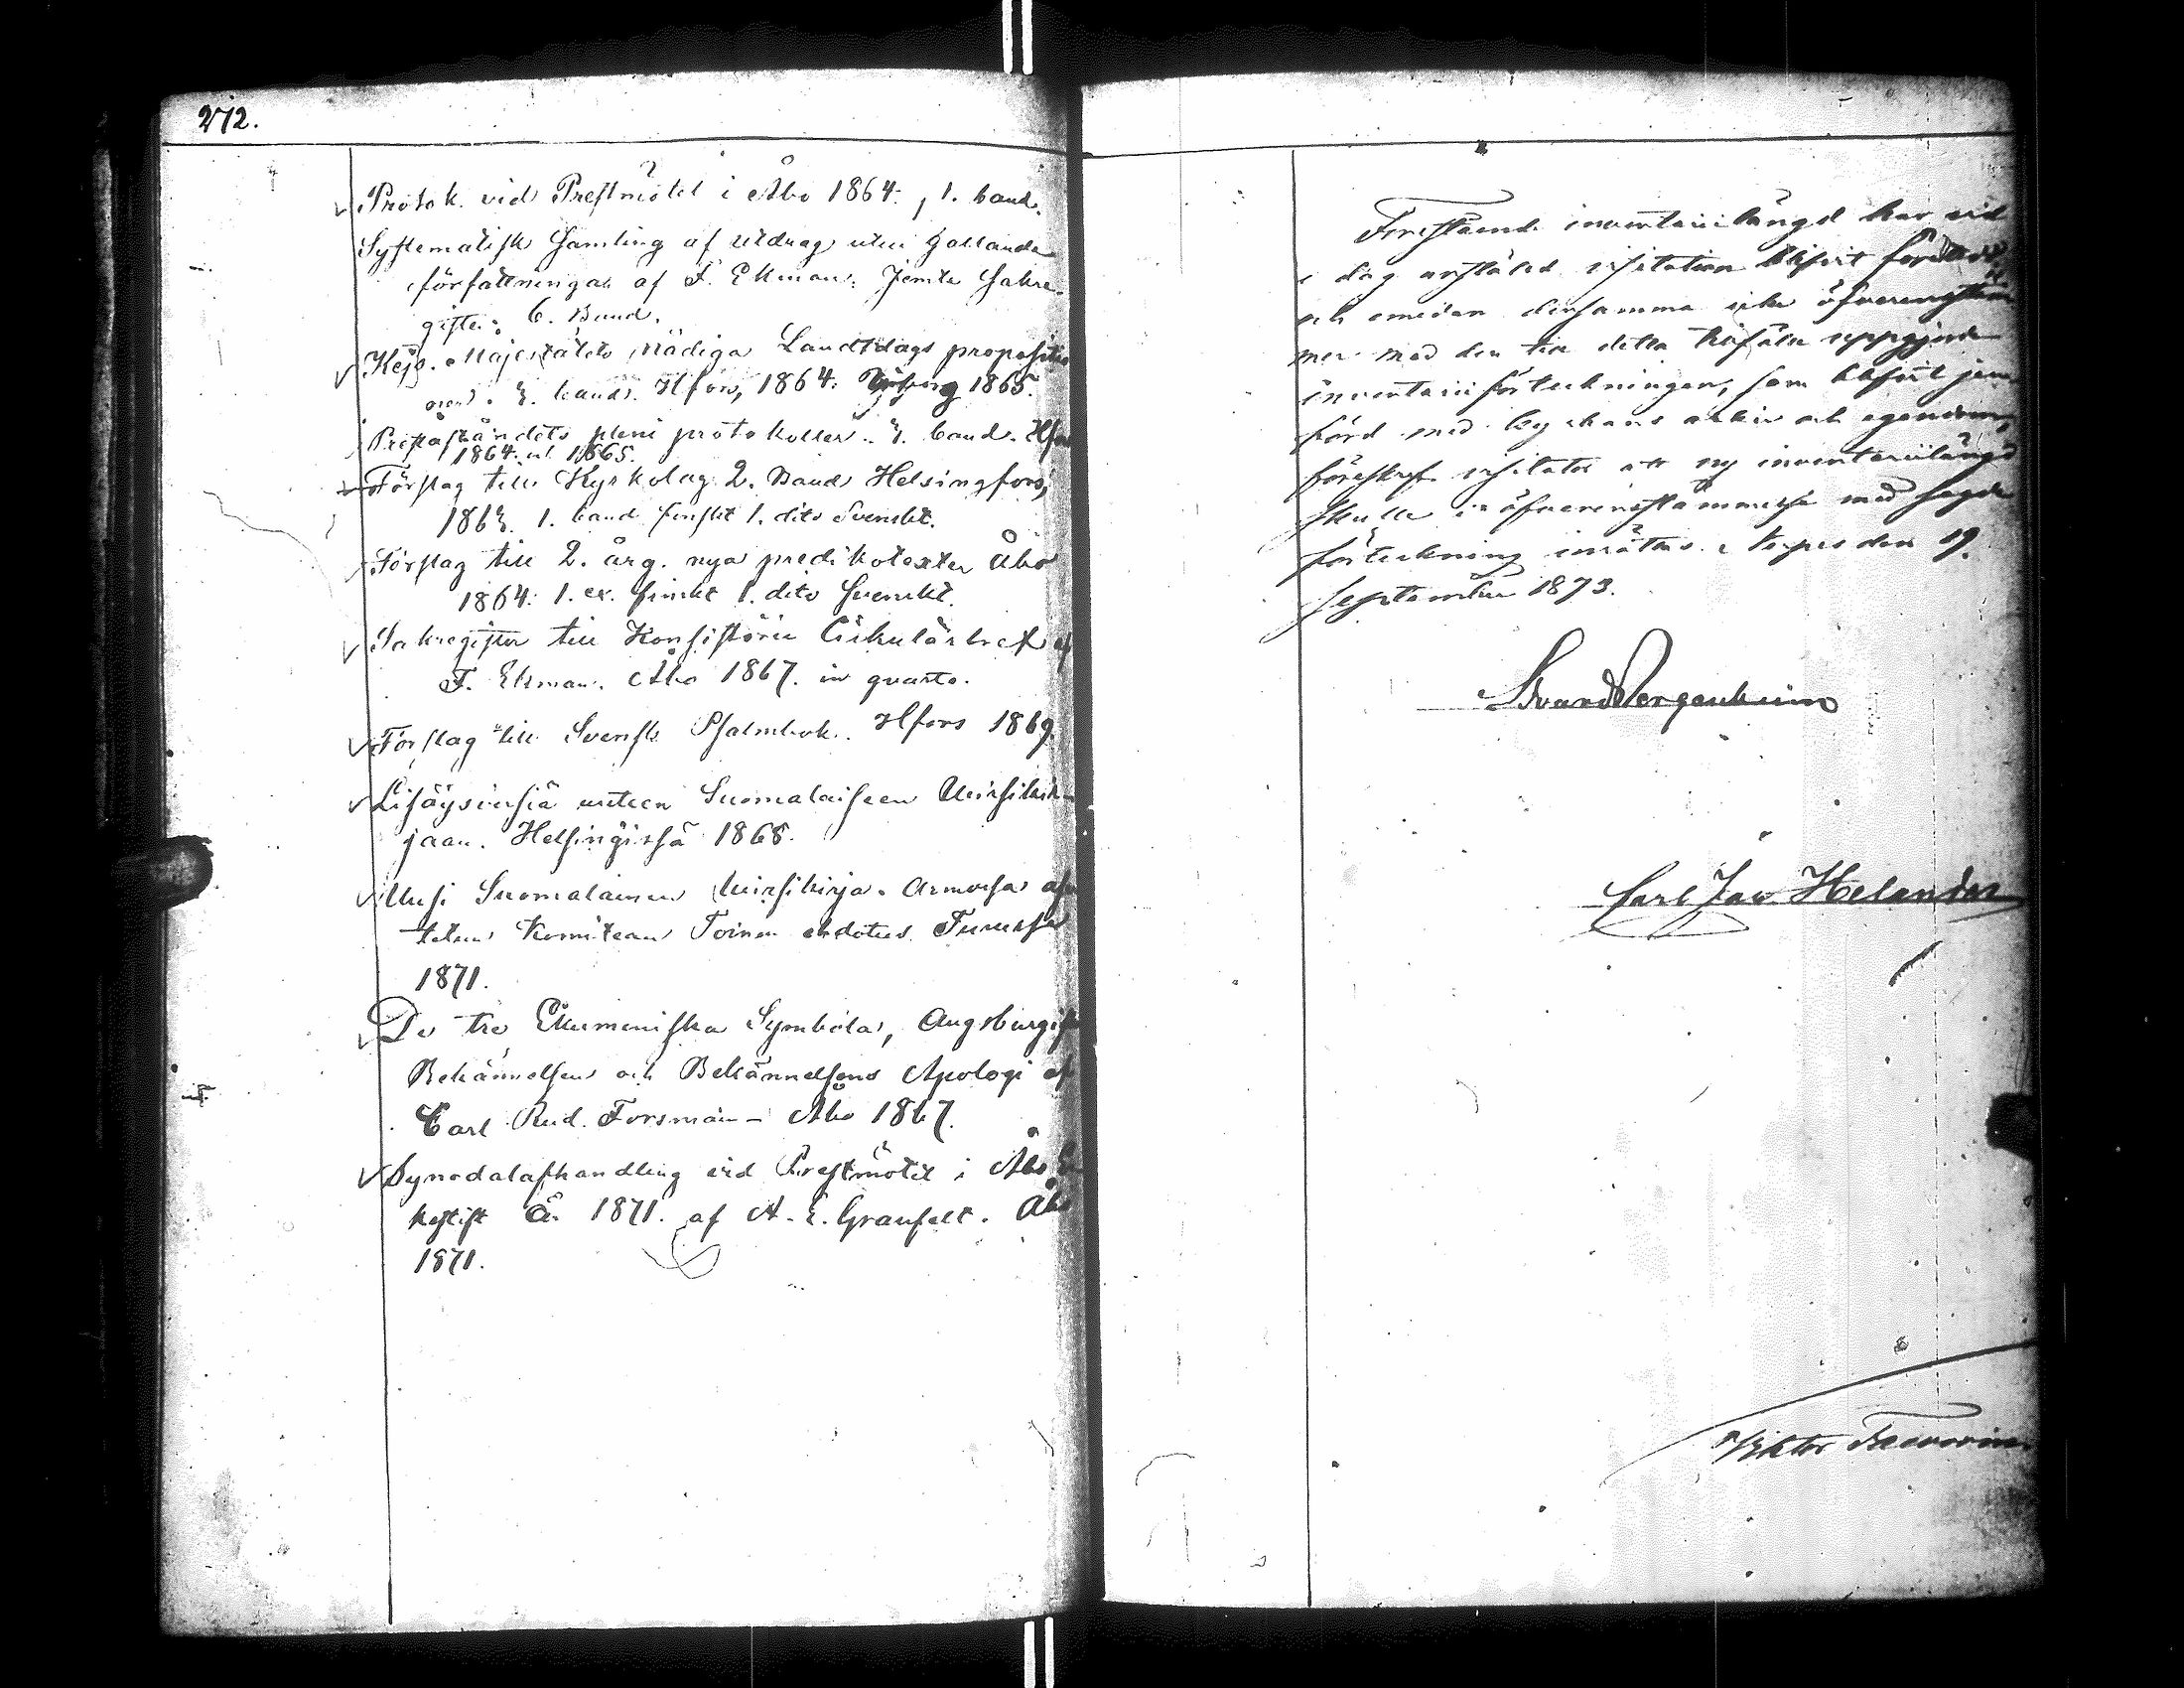 272.
Protok. vid Prestmötet i Åbo 1864. 1. band.
Systematisk Samling af utdrag utur gällande
författningar af F. Ekman. Jemte Sakre-
gister. 6. Band.
Kejs. Majestäts Nådiga Landtdags propositio
ner. 3. band. Hfors, 1864. 1865.
Preståndets pleni protokoller. 3. band. Hfors
1864. 1865.
Förslag till Kyrkolag 2. Band Helsingfors,
1863. 1. band finskt 1. dito Svenskt.
Förslag till 2. årg. nya predikotexter Åbo
1864. 1. ex. finskt 1. dito Svenskt.
Sakregister till Konsistorii Cirkulärbref af
F. Ekman. Åbo 1867. in quarto.
Förslag till Svensk Psalmbok. Hfors 1869.
Lisäysvirsiä uuteen Suomalaiseen Wirsikir-
jaan. Helsingissä 1868.
Uusi Suomalainen Wirsikirja. Armossa ase
tetun Komitean Toinen ehdotus. Turussa
1871.
De tre Ekumeniska Symbola, Augsburgiska
Bekännelsen och Bekännelsens Apologi af
Carl Rud. Forsman - Åbo 1867.
Synodalafhandling vid Prestmötet i Åbo Er
kestift år 1871. af A. E. Granfelt. Åbo
1871.
Förestående inventarii längd har vid
i dag anstäld visitation blifvit
och emedan densamma icke öfverenstäm
mer med den till detta tillfälle uppgjorde
inventarii förteckningen, som blifvit jem
förd med kyrkans arkiv och egendom,
föreskref visitator att ny inventariilängd
skulle i öfverensstämmelse med sagde
förteckning inrättas. den 19.
September 1873.
Edvard Bergenheim
Carl Jav. Helander
Viktor